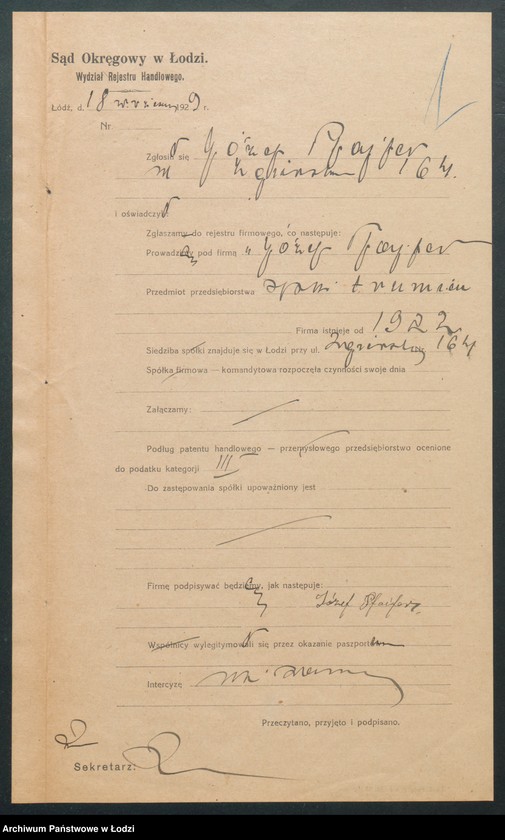 Sąd Okręgowy w Łodzi.
Wydział Rejestru Handlowego.
Łódź, d. 18 września 1929 r.
Nr
Zgłosił się Józef Pfajfer
Zgierska 164.
i oświadczył
Zgłaszamy do rejestru firmowego, co następuje:
Prowadzimy pod firmą „Józef Pfajfer
Przedmiot przedsiębiorstwa trumien
Firma istnieje od 1922
Siedziba spółki znajduje się w Łodzi przy ul. Zgierskiej 164
Spółka firmowa — komandytowa rozpoczęła czynności swoje dnia
Załączamy:
Podług patentu handlowego — przemysłowego przedsiębiorstwo ocenione
do podatku kategorji III
Do zastępowania spółki upoważniony jest
Firmę podpisywać będziemy, jak następuje:
Józef Pfeifer
Wspólnicy wylegitymowali się przez okazanie paszportem
Intercyzę nie
Przeczytano, przyjęto i podpisano.
Sekretarz:
Archiwum Państwowe w Łodzi